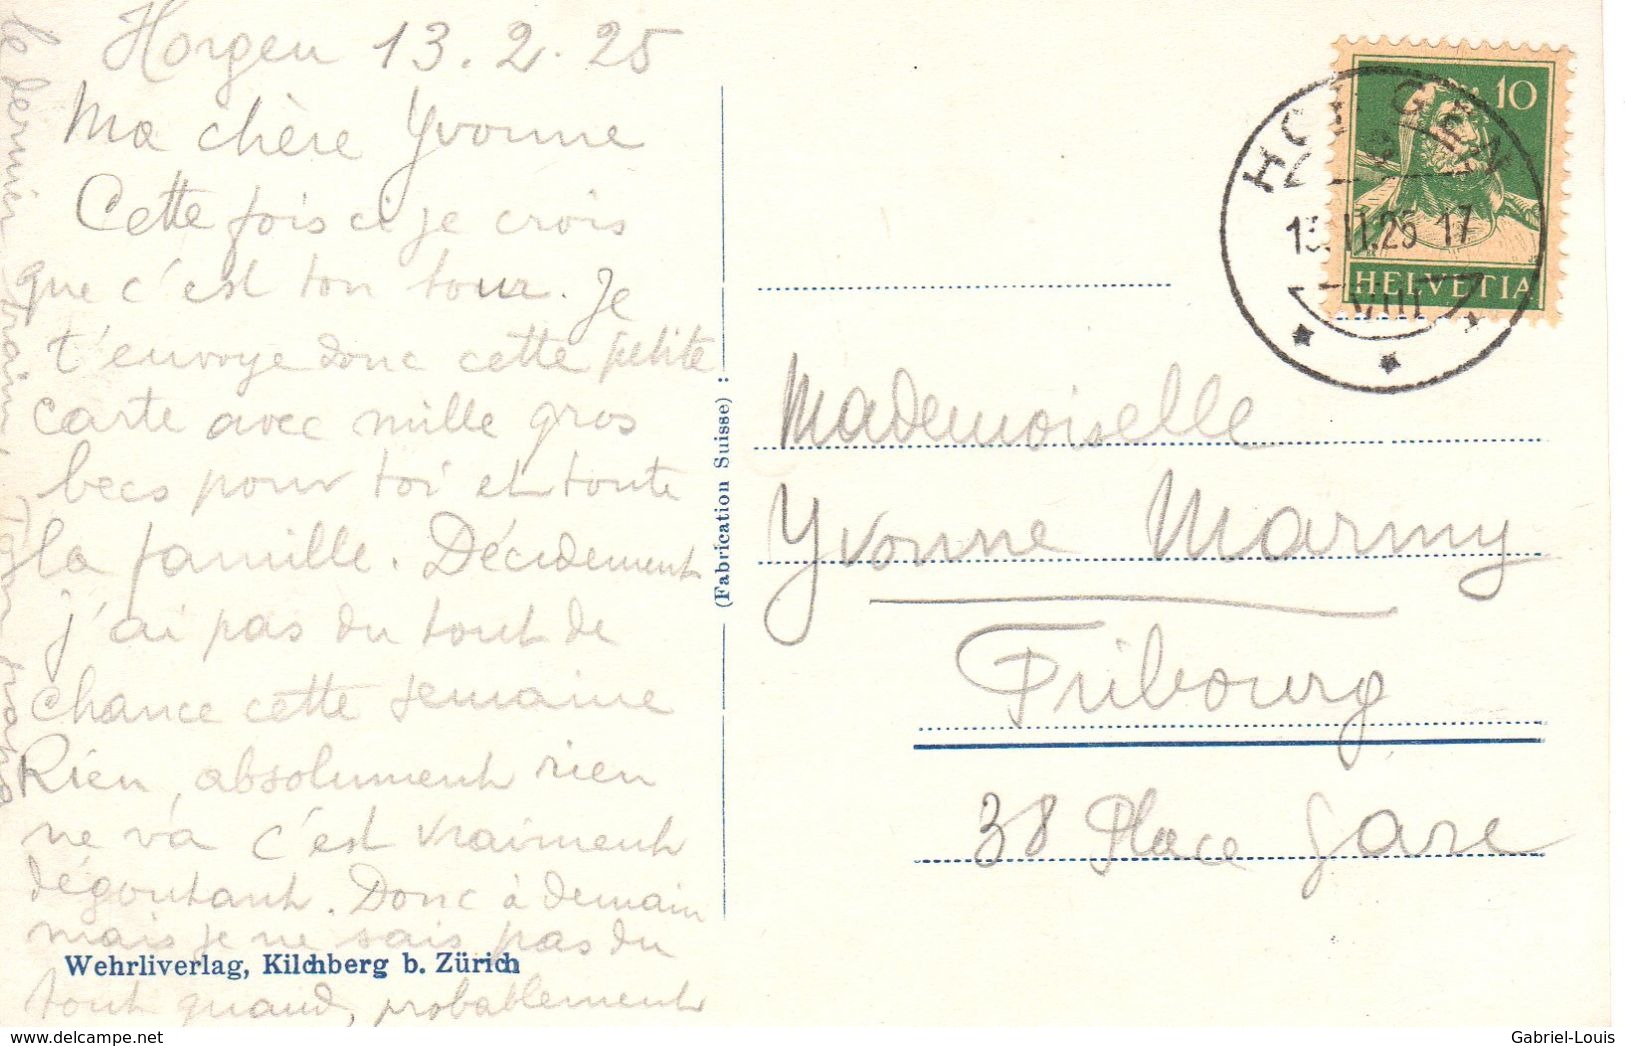 Horgen 13.2.25
Ma chère Yvonne
Cette fois ci je crois
que c'est ton tour. Je
t'envoye donc cette petite
carte avec mille gros
becs pour toi et toute
la famille. Décidement
j'ai pas du tout de
chance cette semaine
Rien, absolument rien
ne va c'est vraiment
dégoutant. Donc à demain
mais je ne sais pas du
tout quand, probablement
le dernier train. Ton
Wehrliverlag, Kilchberg b. Zürich
(Fabrication Suisse):
HORGEN
13.II.25 17
VIII
10
HELVETIA
Mademoiselle
Yvonne Marmy
Fribourg
38 Place Gare
www.delcampe.net
Gabriel-Louis